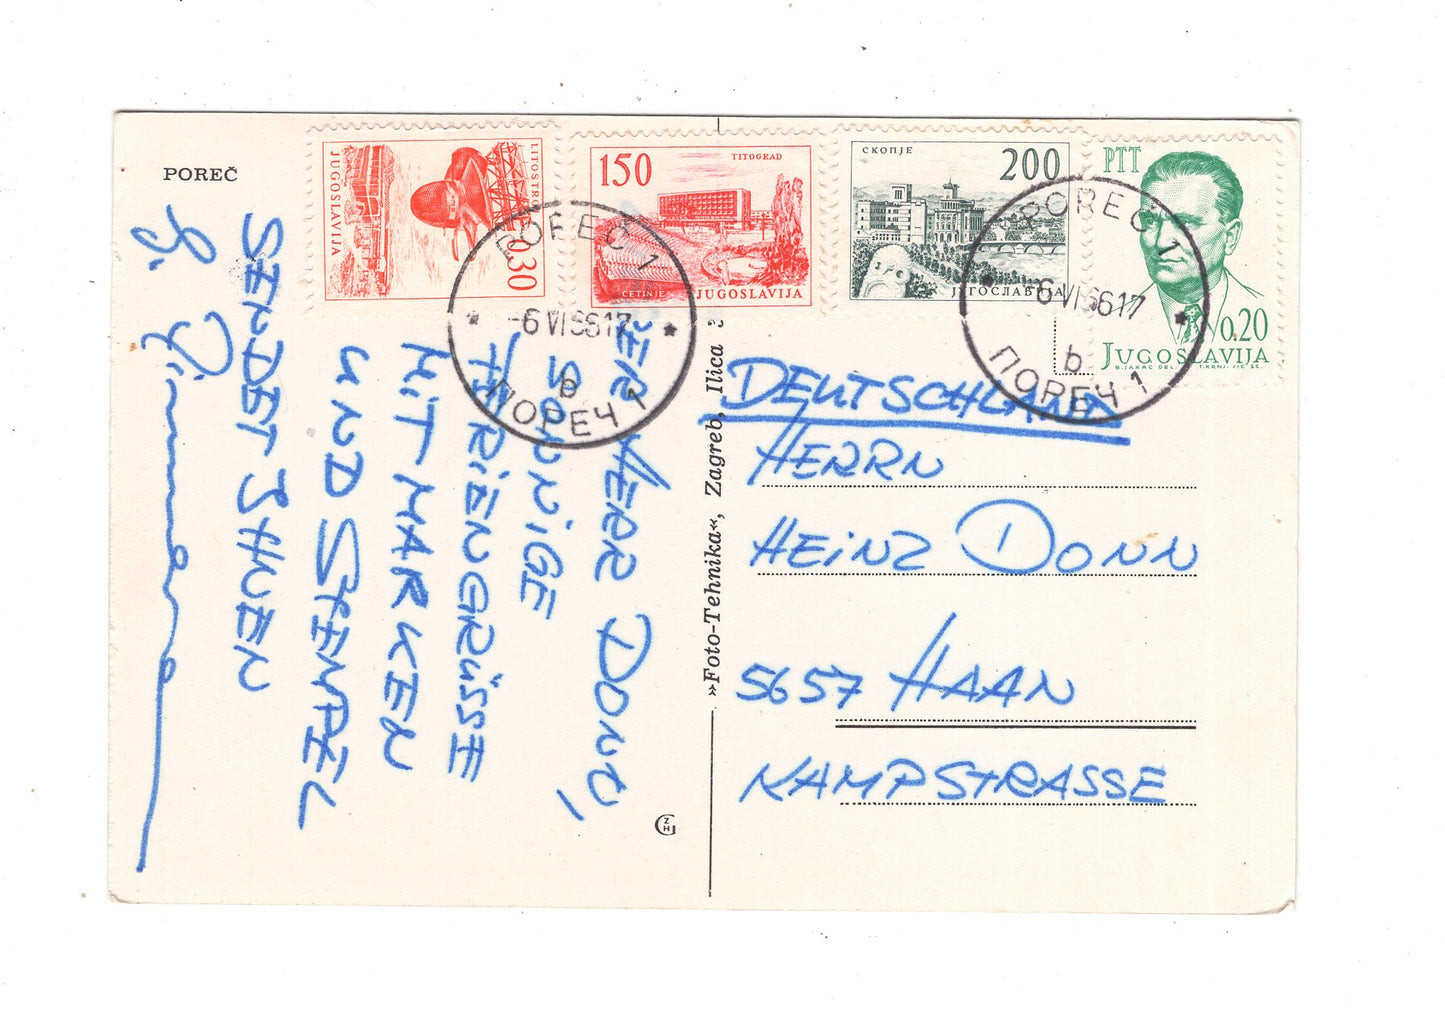 POREČ
LITOSTR
JUGOSLAVIJA
0.30
150
TITOGRAD
CETINJE
JUGOSLAVIJA
СКОПЈЕ
200
ЈУГОСЛАВИЈА
PTT
0.20
JUGOSLAVIJA
B. JAKAC DEL.
POREČ 1
-6 VI 66 17
b
ПОРЕЧ 1
POREČ 1
-6 VI 66 17
b
ПОРЕЧ 1
HERR DONN,
SONNIGE
FERIENGRÜSSE
MIT MARKEN
UND STEMPEL
SENDET IHNEN
»Foto-Tehnika«, Zagreb, Ilica
ZGH
DEUTSCHLAND
HERRN
HEINZ DONN
5657 HAAN
KAMPSTRASSE